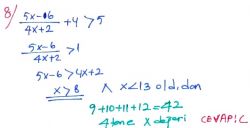 8) (5x-16)/(4x+2) + 4 > 5
(5x-6)/(4x+2) > 1
5x-6 > 4x+2
x > 8 ∧ x<13 oldidan
9+10+11+12=42
4 tane x değeri CEVAP: C